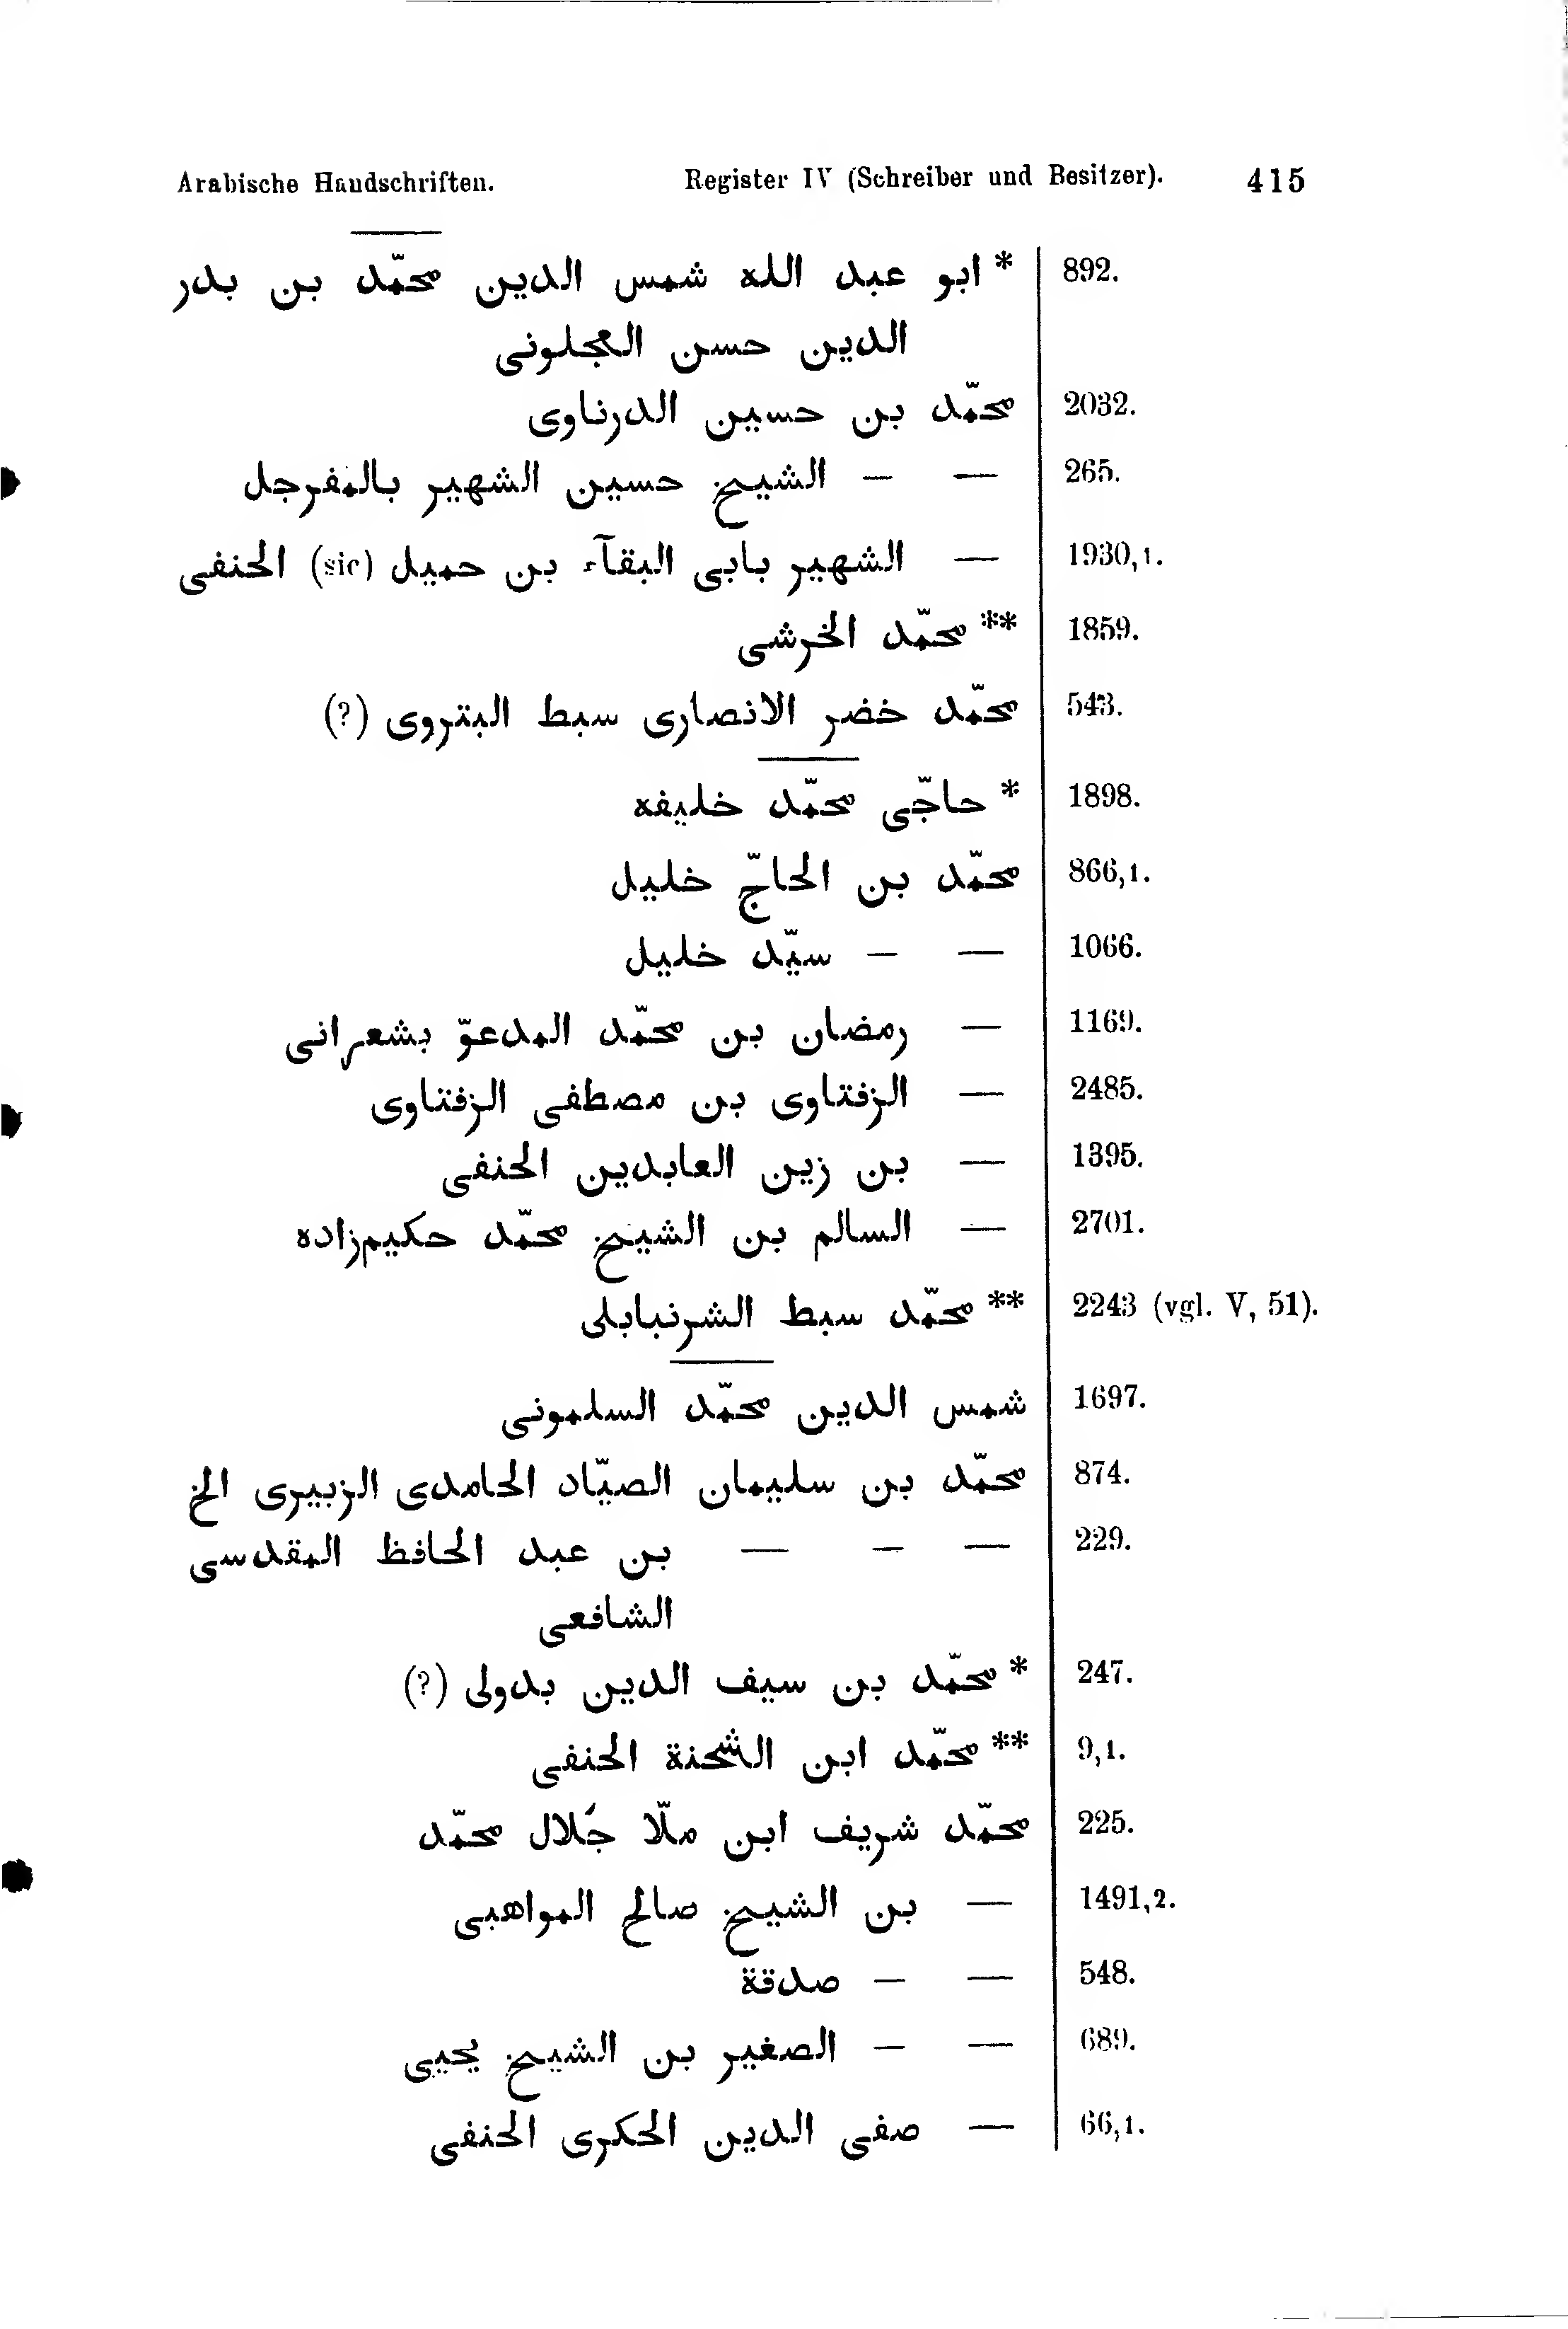 Arabische Handschriften. Register IV (Schreiber und Besitzer). 415
* ابو عبد الله شمس الدين محمّد بن بدر 892.
الدين حسن العجلونى
محمّد بن حسين الدرناوى 2032.
— – الشيخ حسين الشهير بالمفرجل 265.
— الشهير بابى البقآء بن حميل (sic) الحنفى 1930,1.
** محمّد الخرشى 1859.
محمّد خضر الانصارى سبط البتروى (?) 543.
* حاجّى محمّد خليفه 1898.
محمّد بن الحاجّ خليل 866,1.
— – سيّد خليل 1066.
— رمضان بن محمّد المدعوّ بشعرانى 1169.
— الزفتاوى بن مصطفى الزفتاوى 2485.
— بن زين العابدين الحنفى 1395.
— السالم بن الشيخ محمّد حكيم‌زاده 2701.
** محمّد سبط الشرنبابلى 2243 (vgl. V, 51).
شمس الدين محمّد السلمونى 1697.
محمّد بن سليمان الصيّاد الحامدى الزبيرى الخ 874.
— – — بن عبد الحافظ المقدسى 229.
الشافعى
* محمّد بن سيف الدين بدولى (?) 247.
** محمّد ابن الشحنة الحنفى 9,1.
محمّد شريف ابن ملّا جَلال محمّد 225.
— بن الشيخ صالح المواهبى 1491,2.
— – صدقة 548.
— – الصغير بن الشيخ يحيى 689.
— صفى الدين الحكرى الحنفى 66,1.